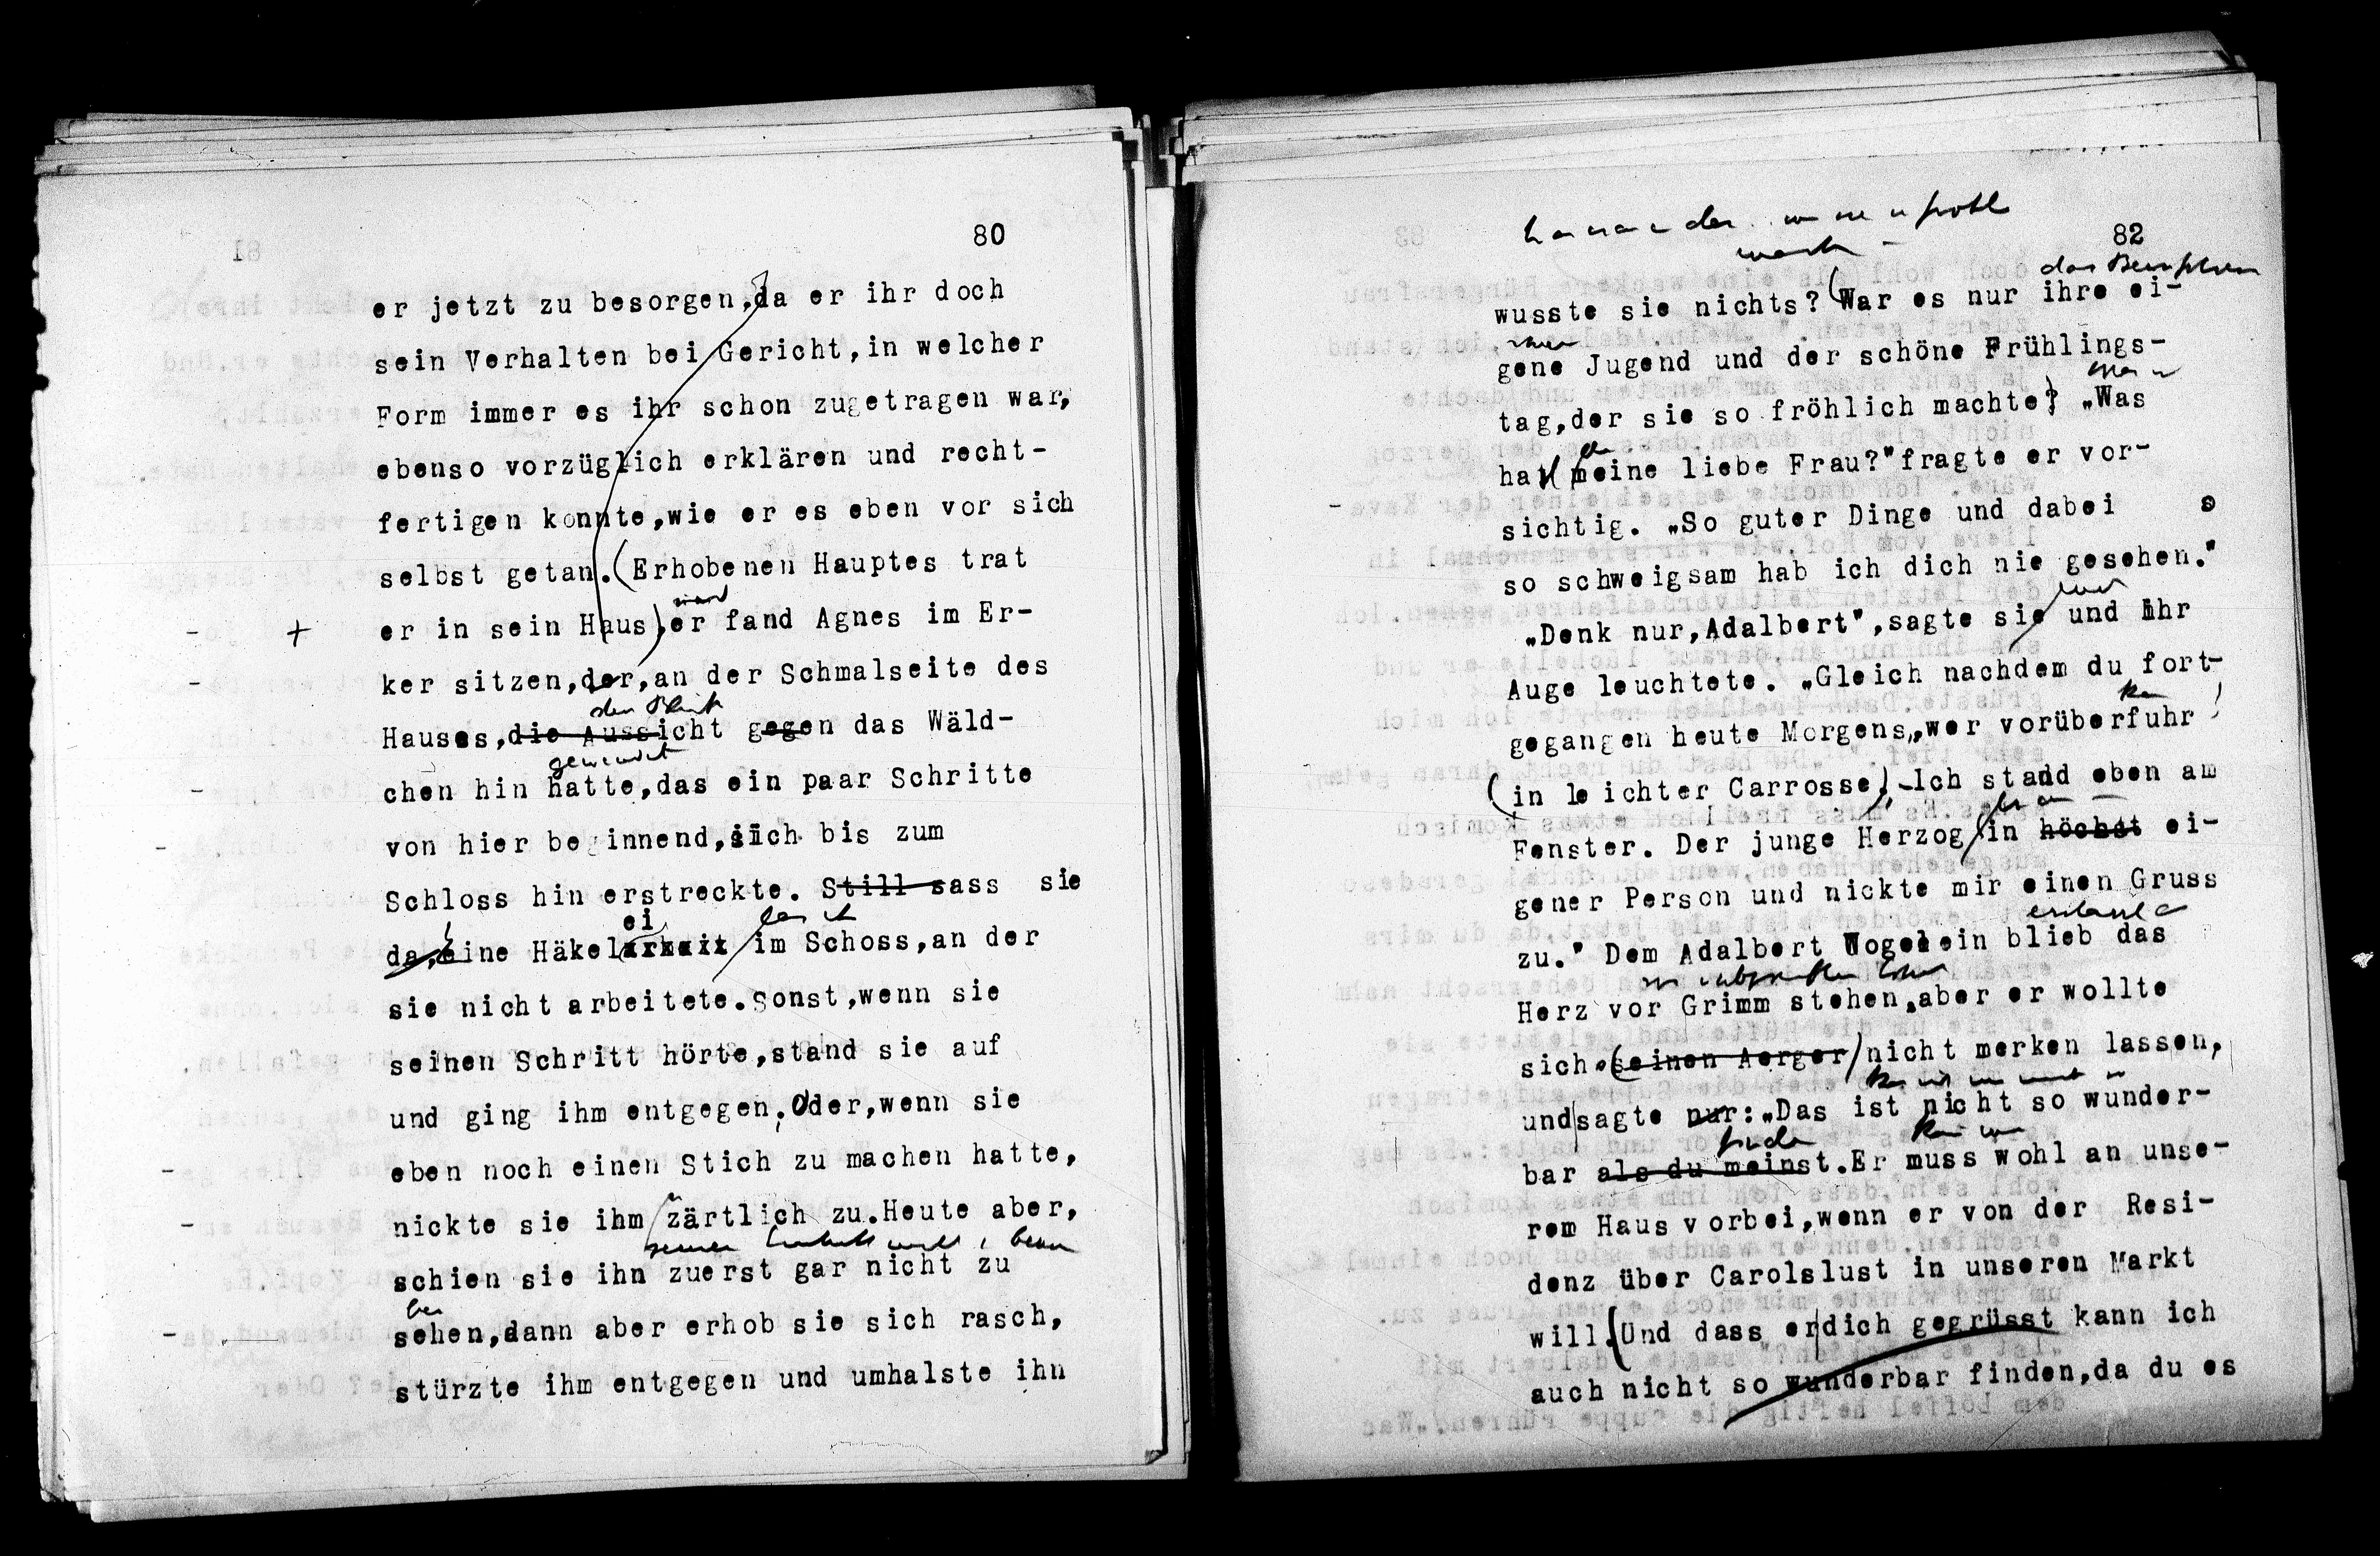 80
er jetzt zu besorgen, da er ihr doch
sein Verhalten bei Gericht, in welcher
Form immer es ihr schon zugetragen war,
ebenso vorzüglich erklären und recht-
fertigen konnte, wie er es eben vor sich
selbst getan. (Erhobenen Hauptes trat
- + er in sein Haus), er fand Agnes im Er-
- ker sitzen, der, an der Schmalseite des
den Blick
Hauses, die Aussicht gegen das Wäld-
gewendet
- chen hin hatte, das ein paar Schritte
- von hier beginnend, sich bis zum
Schloss hin erstreckte. Still sass sie
ei
da, eine Häkelarbeit im Schoss, an der
sie nicht arbeitete. Sonst, wenn sie
seinen Schritt hörte, stand sie auf
und ging ihm entgegen. Oder, wenn sie
- eben noch einen Stich zu machen hatte,
- nickte sie ihm zärtlich zu. Heute aber,
schien sie ihn zuerst gar nicht zu
- sehen, dann aber erhob sie sich rasch,
stürzte ihm entgegen und umhalste ihn
82
wusste sie nichts? (War es nur ihre ei-
gene Jugend und der schöne Frühlings-
tag, der sie so fröhlich machte?) „Was
hat meine liebe Frau?" fragte er vor-
- sichtig. „So guter Dinge und dabei s
so schweigsam hab ich dich nie gesehen."
„Denk nur, Adalbert", sagte sie und ihr
Auge leuchtete. „Gleich nachdem du fort-
gegangen heute Morgens, wer vorüberfuhr
(in leichter Carrosse). Ich stand eben am
Fenster. Der junge Herzog in höchst ei-
gener Person und nickte mir einen Gruss
zu." Dem Adalbert Wogelein blieb das
Herz vor Grimm stehen, aber er wollte
sich (seinen Aerger) nicht merken lassen,
und sagte nur: „Das ist nicht so wunder-
bar als du meinst. Er muss wohl an unse-
rem Haus vorbei, wenn er von der Resi-
denz über Carolslust in unseren Markt
will. (Und dass er dich gegrüsst kann ich
auch nicht so wunderbar finden, da du es